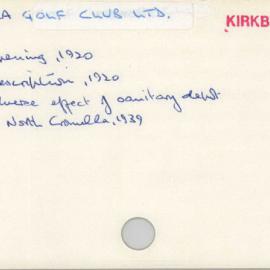 A GOLF CLUB LTD.
KIRKB
ening, 1920
escription, 1920
dverse effect of sanitary depot
North Cronulla, 1939